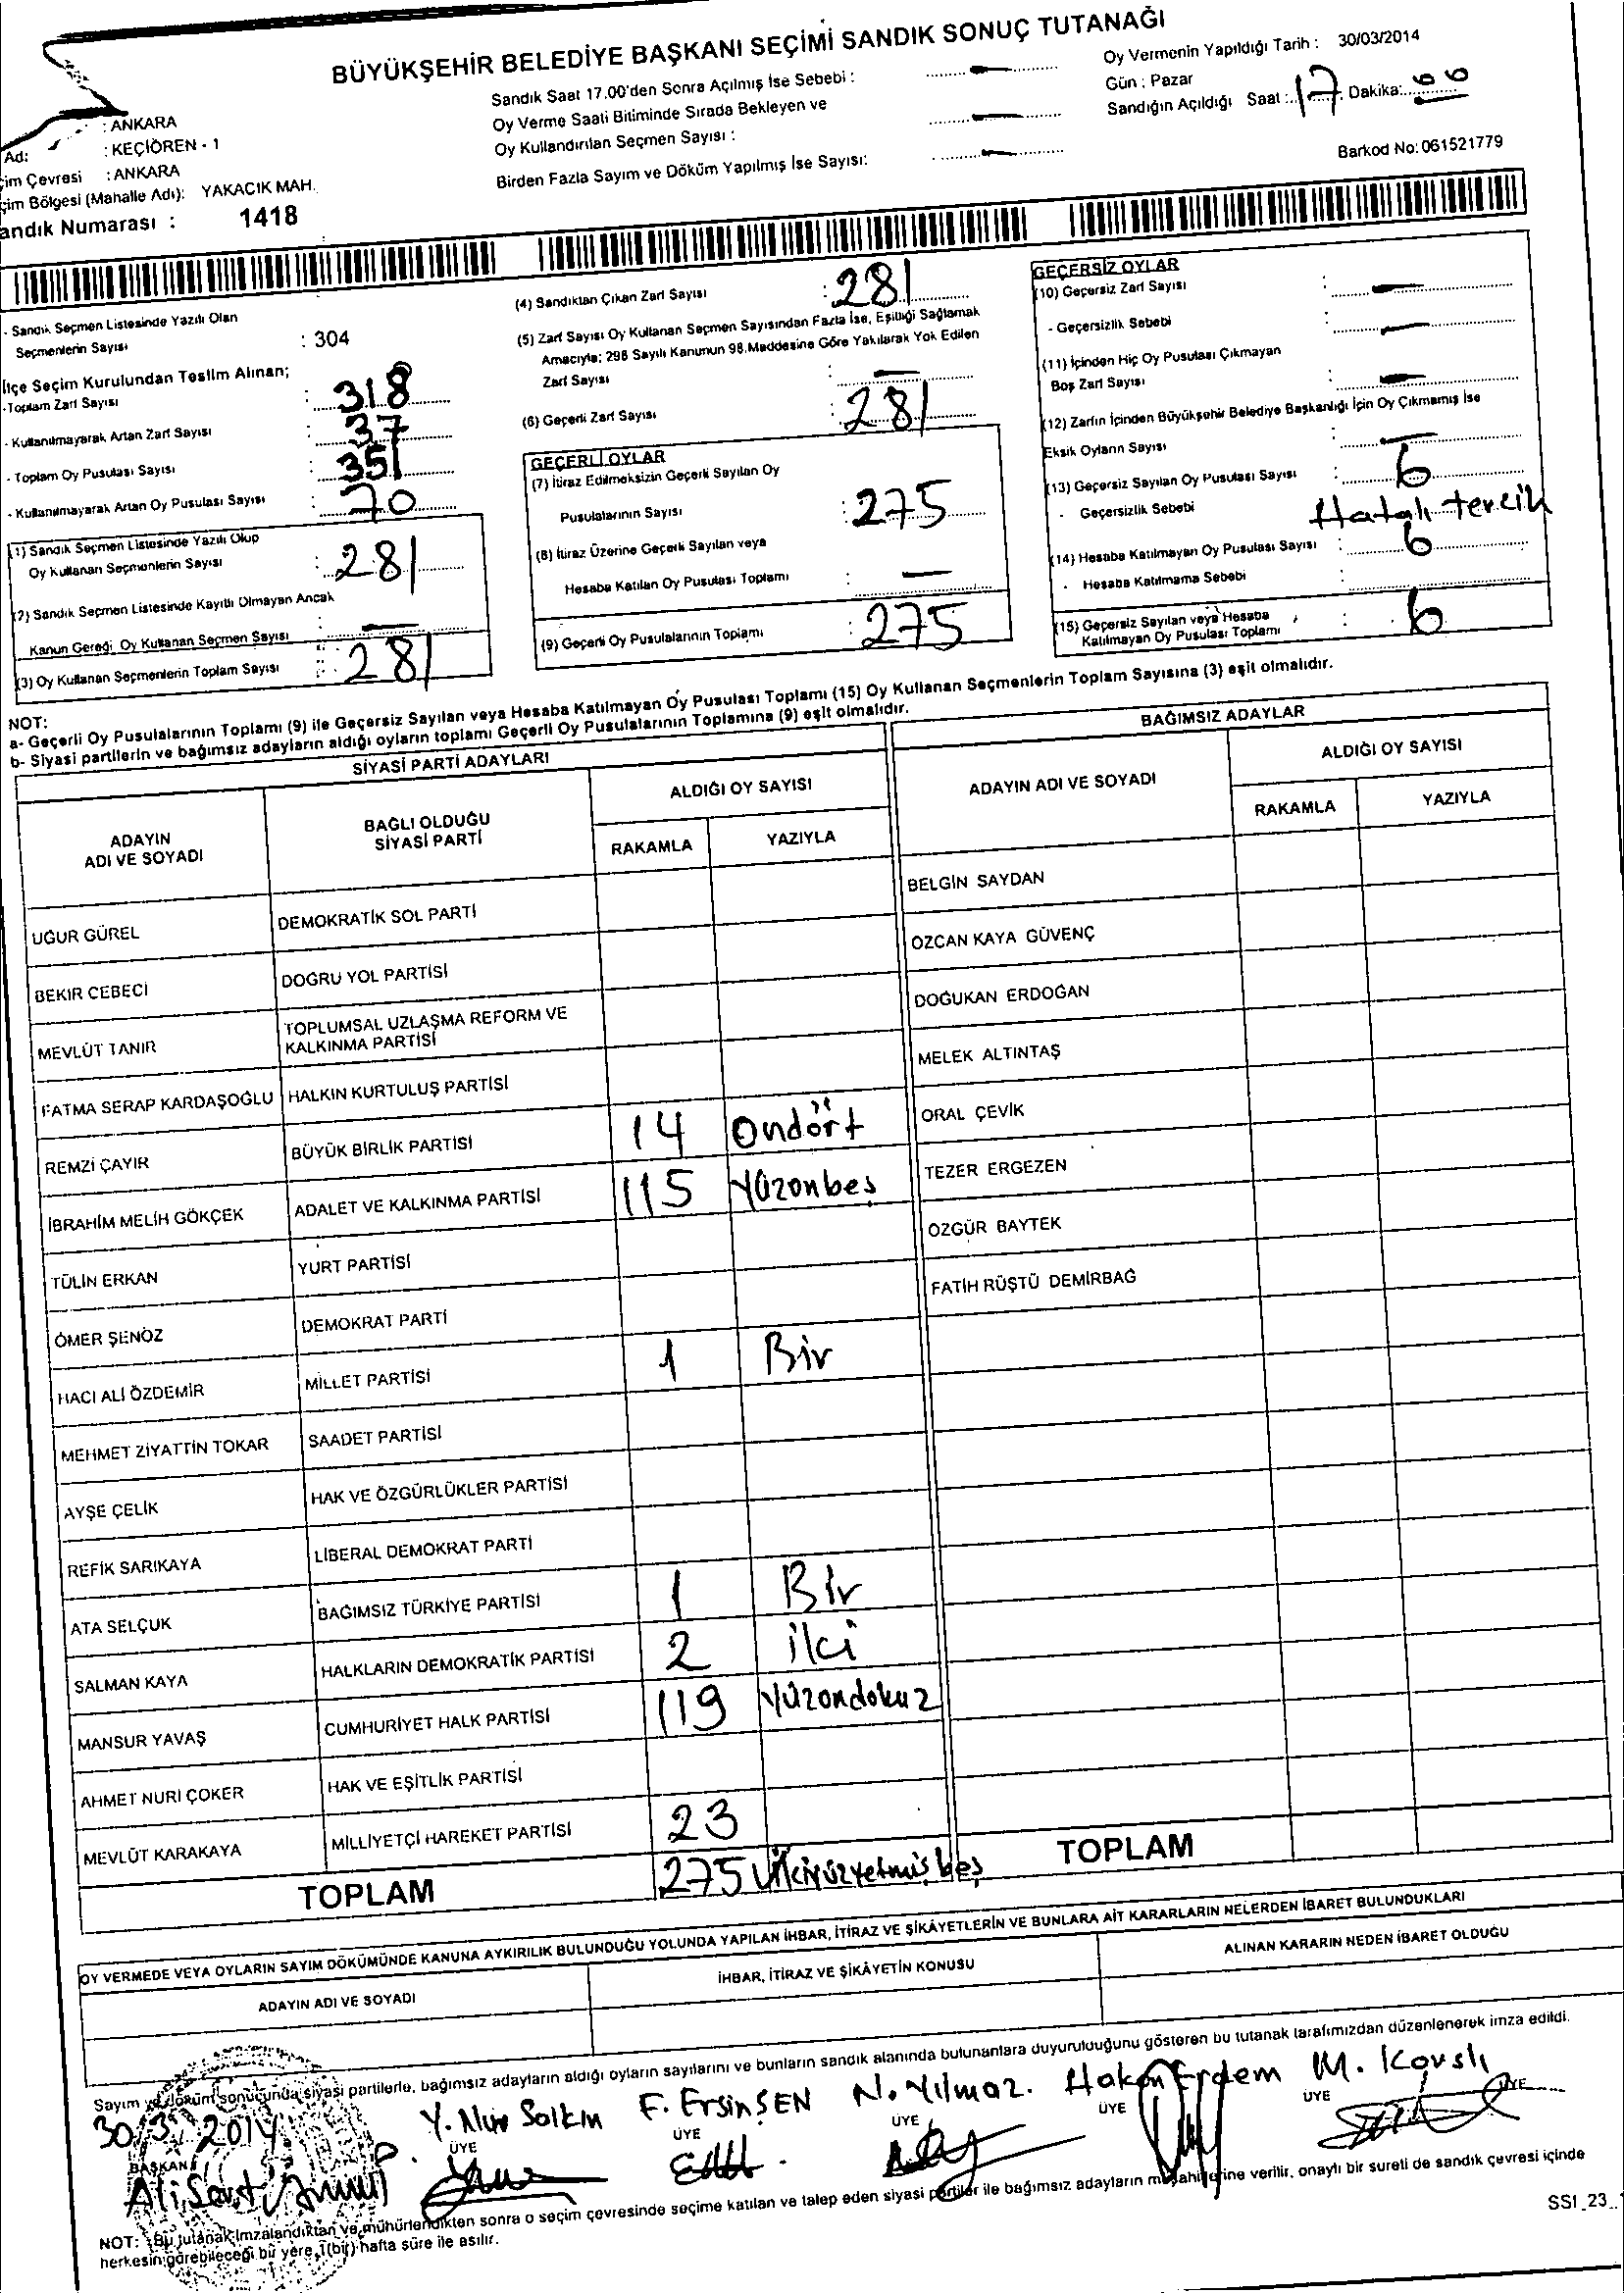 BÜYÜKŞEHİR BELEDİYE BAŞKANI SEÇİMİ SANDIK SONUÇ TUTANAĞI
: ANKARA
Ad: : KEÇİÖREN - 1
çim Çevresi : ANKARA
çim Bölgesi (Mahalle Adı): YAKACIK MAH.
andık Numarası : 1418
Sandık Saat 17.00'den Sonra Açılmış İse Sebebi :
Oy Verme Saati Bitiminde Sırada Bekleyen ve
Oy Kullandırılan Seçmen Sayısı :
Birden Fazla Sayım ve Döküm Yapılmış İse Sayısı:
Oy Vermenin Yapıldığı Tarih : 30/03/2014
Gün : Pazar
Sandığın Açıldığı Saat : 17 Dakika: 00
Barkod No: 061521779
- Sandık Seçmen Listesinde Yazılı Olan
Seçmenlerin Sayısı : 304
İlçe Seçim Kurulundan Teslim Alınan;
-Toplam Zarf Sayısı : 318
- Kullanılmayarak Artan Zarf Sayısı : 37
- Toplam Oy Pusulası Sayısı : 351
- Kullanılmayarak Artan Oy Pusulası Sayısı : 70
(1) Sandık Seçmen Listesinde Yazılı Olup
Oy Kullanan Seçmenlerin Sayısı : 281
(2) Sandık Seçmen Listesinde Kayıtlı Olmayan Ancak
Kanun Gereği Oy Kullanan Seçmen Sayısı : —
(3) Oy Kullanan Seçmenlerin Toplam Sayısı : 281
(4) Sandıktan Çıkan Zarf Sayısı : 281
(5) Zarf Sayısı Oy Kullanan Seçmen Sayısından Fazla İse, Eşitliği Sağlamak
Amacıyla; 298 Sayılı Kanunun 98.Maddesine Göre Yakılarak Yok Edilen
Zarf Sayısı : —
(6) Geçerli Zarf Sayısı : 281
GEÇERLİ OYLAR
(7) İtiraz Edilmeksizin Geçerli Sayılan Oy
Pusulalarının Sayısı : 275
(8) İtiraz Üzerine Geçerli Sayılan veya
Hesaba Katılan Oy Pusulası Toplamı : —
(9) Geçerli Oy Pusulalarının Toplamı : 275
GEÇERSİZ OYLAR
(10) Geçersiz Zarf Sayısı : —
- Geçersizlik Sebebi : —
(11) İçinden Hiç Oy Pusulası Çıkmayan
Boş Zarf Sayısı : —
(12) Zarfın İçinden Büyükşehir Belediye Başkanlığı İçin Oy Çıkmamış İse
Eksik Oyların Sayısı : —
(13) Geçersiz Sayılan Oy Pusulası Sayısı : 6
- Geçersizlik Sebebi Hatalı tercih
(14) Hesaba Katılmayan Oy Pusulası Sayısı : 6
- Hesaba Katılmama Sebebi :
(15) Geçersiz Sayılan veya Hesaba
Katılmayan Oy Pusulası Toplamı : 6
NOT:
a- Geçerli Oy Pusulalarının Toplamı (9) ile Geçersiz Sayılan veya Hesaba Katılmayan Oy Pusulası Toplamı (15) Oy Kullanan Seçmenlerin Toplam Sayısına (3) eşit olmalıdır.
b- Siyasi partilerin ve bağımsız adayların aldığı oyların toplamı Geçerli Oy Pusulalarının Toplamına (9) eşit olmalıdır.
SİYASİ PARTİ ADAYLARI
ADAYIN
ADI VE SOYADI
BAĞLI OLDUĞU
SİYASİ PARTİ
ALDIĞI OY SAYISI
RAKAMLA YAZIYLA
UĞUR GÜREL DEMOKRATİK SOL PARTİ
BEKİR CEBECİ DOĞRU YOL PARTİSİ
MEVLÜT TANIR TOPLUMSAL UZLAŞMA REFORM VE
KALKINMA PARTİSİ
FATMA SERAP KARDAŞOĞLU HALKIN KURTULUŞ PARTİSİ
REMZİ ÇAYIR BÜYÜK BİRLİK PARTİSİ 14 Ondört
İBRAHİM MELİH GÖKÇEK ADALET VE KALKINMA PARTİSİ 115 Yüzonbeş
TÜLİN ERKAN YURT PARTİSİ
ÖMER ŞENÖZ DEMOKRAT PARTİ
HACI ALİ ÖZDEMİR MİLLET PARTİSİ 1 Bir
MEHMET ZİYATTİN TOKAR SAADET PARTİSİ
AYŞE ÇELİK HAK VE ÖZGÜRLÜKLER PARTİSİ
REFİK SARIKAYA LİBERAL DEMOKRAT PARTİ
ATA SELÇUK BAĞIMSIZ TÜRKİYE PARTİSİ 1 Bir
SALMAN KAYA HALKLARIN DEMOKRATİK PARTİSİ 2 iki
MANSUR YAVAŞ CUMHURİYET HALK PARTİSİ 119 Yüzondokuz
AHMET NURİ ÇOKER HAK VE EŞİTLİK PARTİSİ
MEVLÜT KARAKAYA MİLLİYETÇİ HAREKET PARTİSİ 23
TOPLAM 275 İkiyüzyetmiş beş
BAĞIMSIZ ADAYLAR
ADAYIN ADI VE SOYADI
ALDIĞI OY SAYISI
RAKAMLA YAZIYLA
BELGİN SAYDAN
OZCAN KAYA GÜVENÇ
DOĞUKAN ERDOĞAN
MELEK ALTINTAŞ
ORAL ÇEVİK
TEZER ERGEZEN
OZGÜR BAYTEK
FATİH RÜŞTÜ DEMİRBAĞ
TOPLAM
OY VERMEDE VEYA OYLARIN SAYIM DÖKÜMÜNDE KANUNA AYKIRILIK BULUNDUĞU YOLUNDA YAPILAN İHBAR, İTİRAZ VE ŞİKÂYETLERİN VE BUNLARA AİT KARARLARIN NELERDEN İBARET BULUNDUKLARI
ADAYIN ADI VE SOYADI İHBAR, İTİRAZ VE ŞİKÂYETİN KONUSU ALINAN KARARIN NEDEN İBARET OLDUĞU
Sayım ve döküm sonucunda siyasi partilerle, bağımsız adayların aldığı oyların sayılarını ve bunların sandık alanında bulunanlara duyurulduğunu gösteren bu tutanak tarafımızdan düzenlenerek imza edildi.
30/3/2014
Y. Nur F. Ersin ŞEN N. Yılmaz. Hakan Erdem M.
BAŞKAN ÜYE ÜYE ÜYE ÜYE ÜYE ÜYE
NOT: Bu tutanak imzalandıktan ve mühürlendikten sonra o seçim çevresinde seçime katılan ve talep eden siyasi partiler ile bağımsız adayların müşahitlerine verilir, onaylı bir sureti de sandık çevresi içinde
herkesin görebileceği bir yere, 1(bir) hafta süre ile asılır.
SS1_23